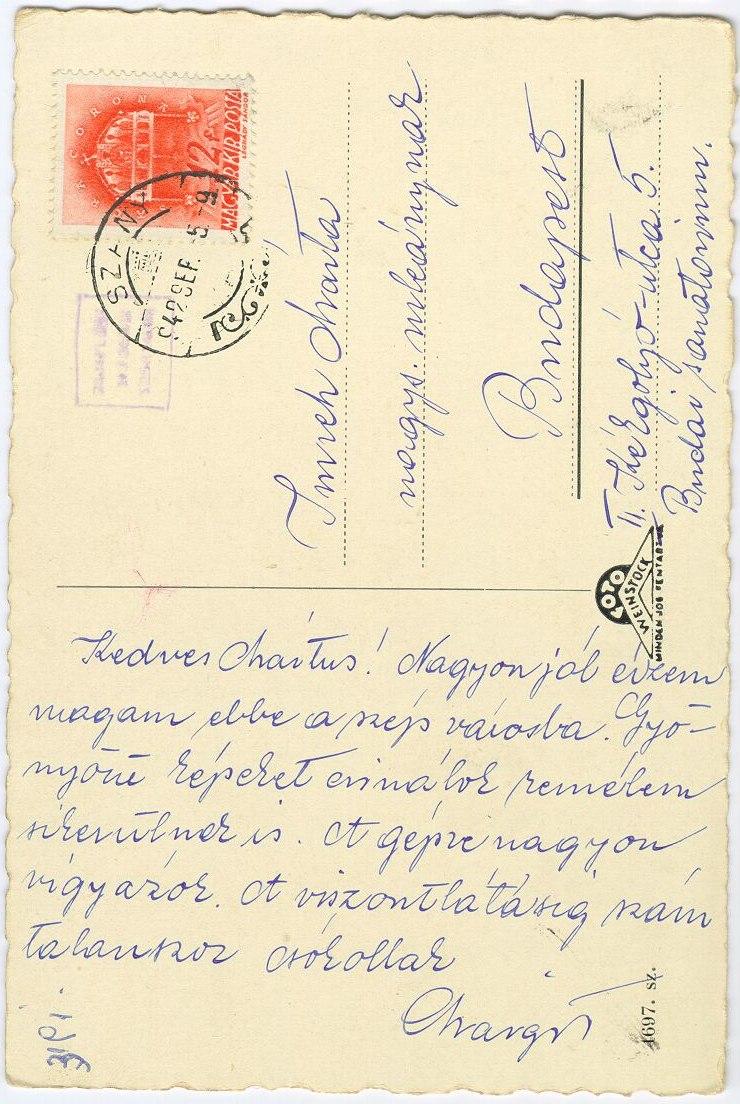 SACRA CORONA
12 f
MAGYAR KIR. POSTA
LÉGRÁDY SÁNDOR
942 SEP. 5 - 9
Imreh Márta
nagys. urleánynak
Budapest
II. Kékgolyó-utca 5.
Budai sanatorium.
FOTO
WEINSTOCK
Kedves Mártus! Nagyon jól érzem
magam ebbe a szép városba. Gyö-
nyörü képeket csinálok remélem
sikerülnek is. A gépre nagyon
vigyázok. A viszontlátásig szám
talanszor csókollak
Margit
4697. sz.